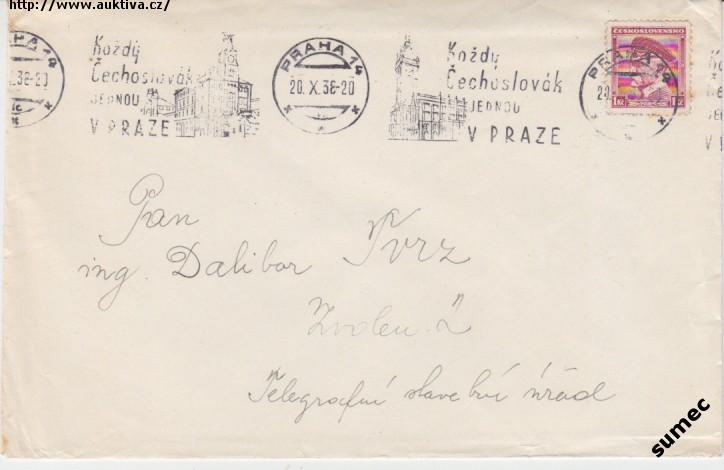 http://www.auktiva.cz/
PRAHA 14
X.38-20
Každý
Čechoslovák
JEDNOU
V PRAZE
PRAHA 14
20.X.38-20
Každý
Čechoslovák
JEDNOU
V PRAZE
ČESKOSLOVENSKO
1Kč
PRAHA 14
20
V
Pan
ing. Dalibor Tvrz
Zvolen 2
Telegrafní stavební úřad
sumec